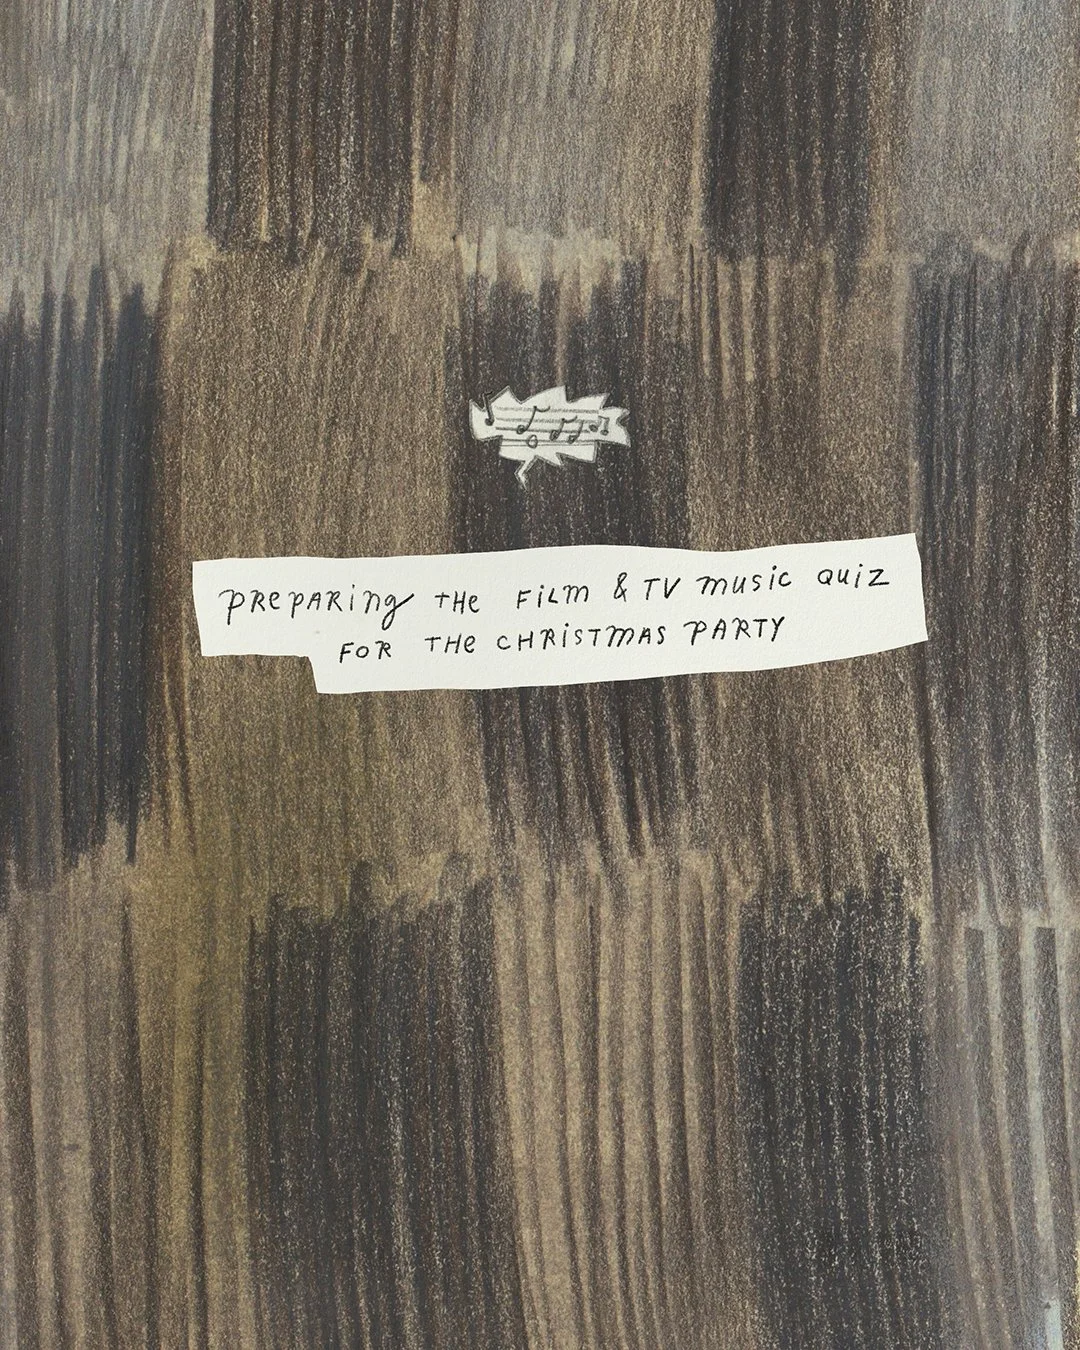 PREPARING THE FILM & TV MUSIC QUIZ
FOR THE CHRISTMAS PARTY